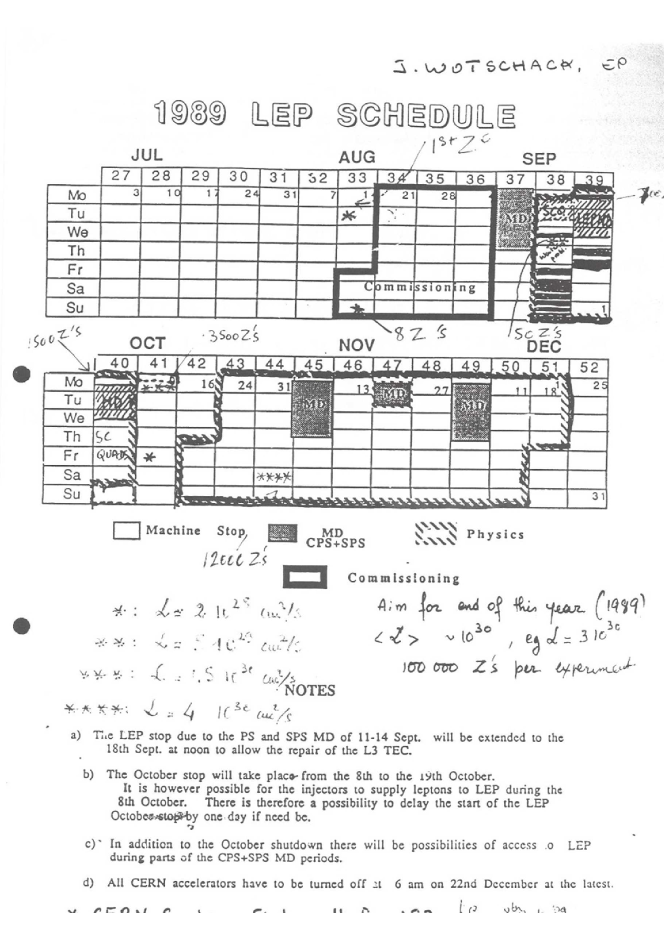 J. WOTSCHACK, EP
1989 LEP SCHEDULE
1st Z°
JUL AUG SEP
27 28 29 30 31 32 33 34 35 36 37 38 39
Mo 3 10 17 24 31 7 21 28
Tu * MD
We
Th
Fr
Sa Commissioning
Su * 1
1500Z's 3500Z's 8 Z's 50 Z's
OCT NOV DEC
40 41 42 43 44 45 46 47 48 49 50 51 52
Mo *** 16 24 31 MD 13 MD 27 MD 11 18 25
Tu MD
We
Th SC
Fr QUADS *
Sa ****
Su 31
Machine Stop, MD CPS+SPS Physics
12000 Z's
Commissioning
*: L = 2 10²⁹ cm²/s
Aim for end of this year (1989)
**: L = 5 10²⁹ cm²/s
<L> ~ 10³⁰, eg L = 3 10³⁰
***: L = 1.5 10³⁰ cm²/s
100 000 Z's per experiment
NOTES
****: L = 4 10³⁰ cm²/s
a) The LEP stop due to the PS and SPS MD of 11-14 Sept. will be extended to the
18th Sept. at noon to allow the repair of the L3 TEC.
b) The October stop will take place from the 8th to the 19th October.
It is however possible for the injectors to supply leptons to LEP during the
8th October. There is therefore a possibility to delay the start of the LEP
October stop by one day if need be.
c) In addition to the October shutdown there will be possibilities of access to LEP
during parts of the CPS+SPS MD periods.
d) All CERN accelerators have to be turned off at 6 am on 22nd December at the latest.